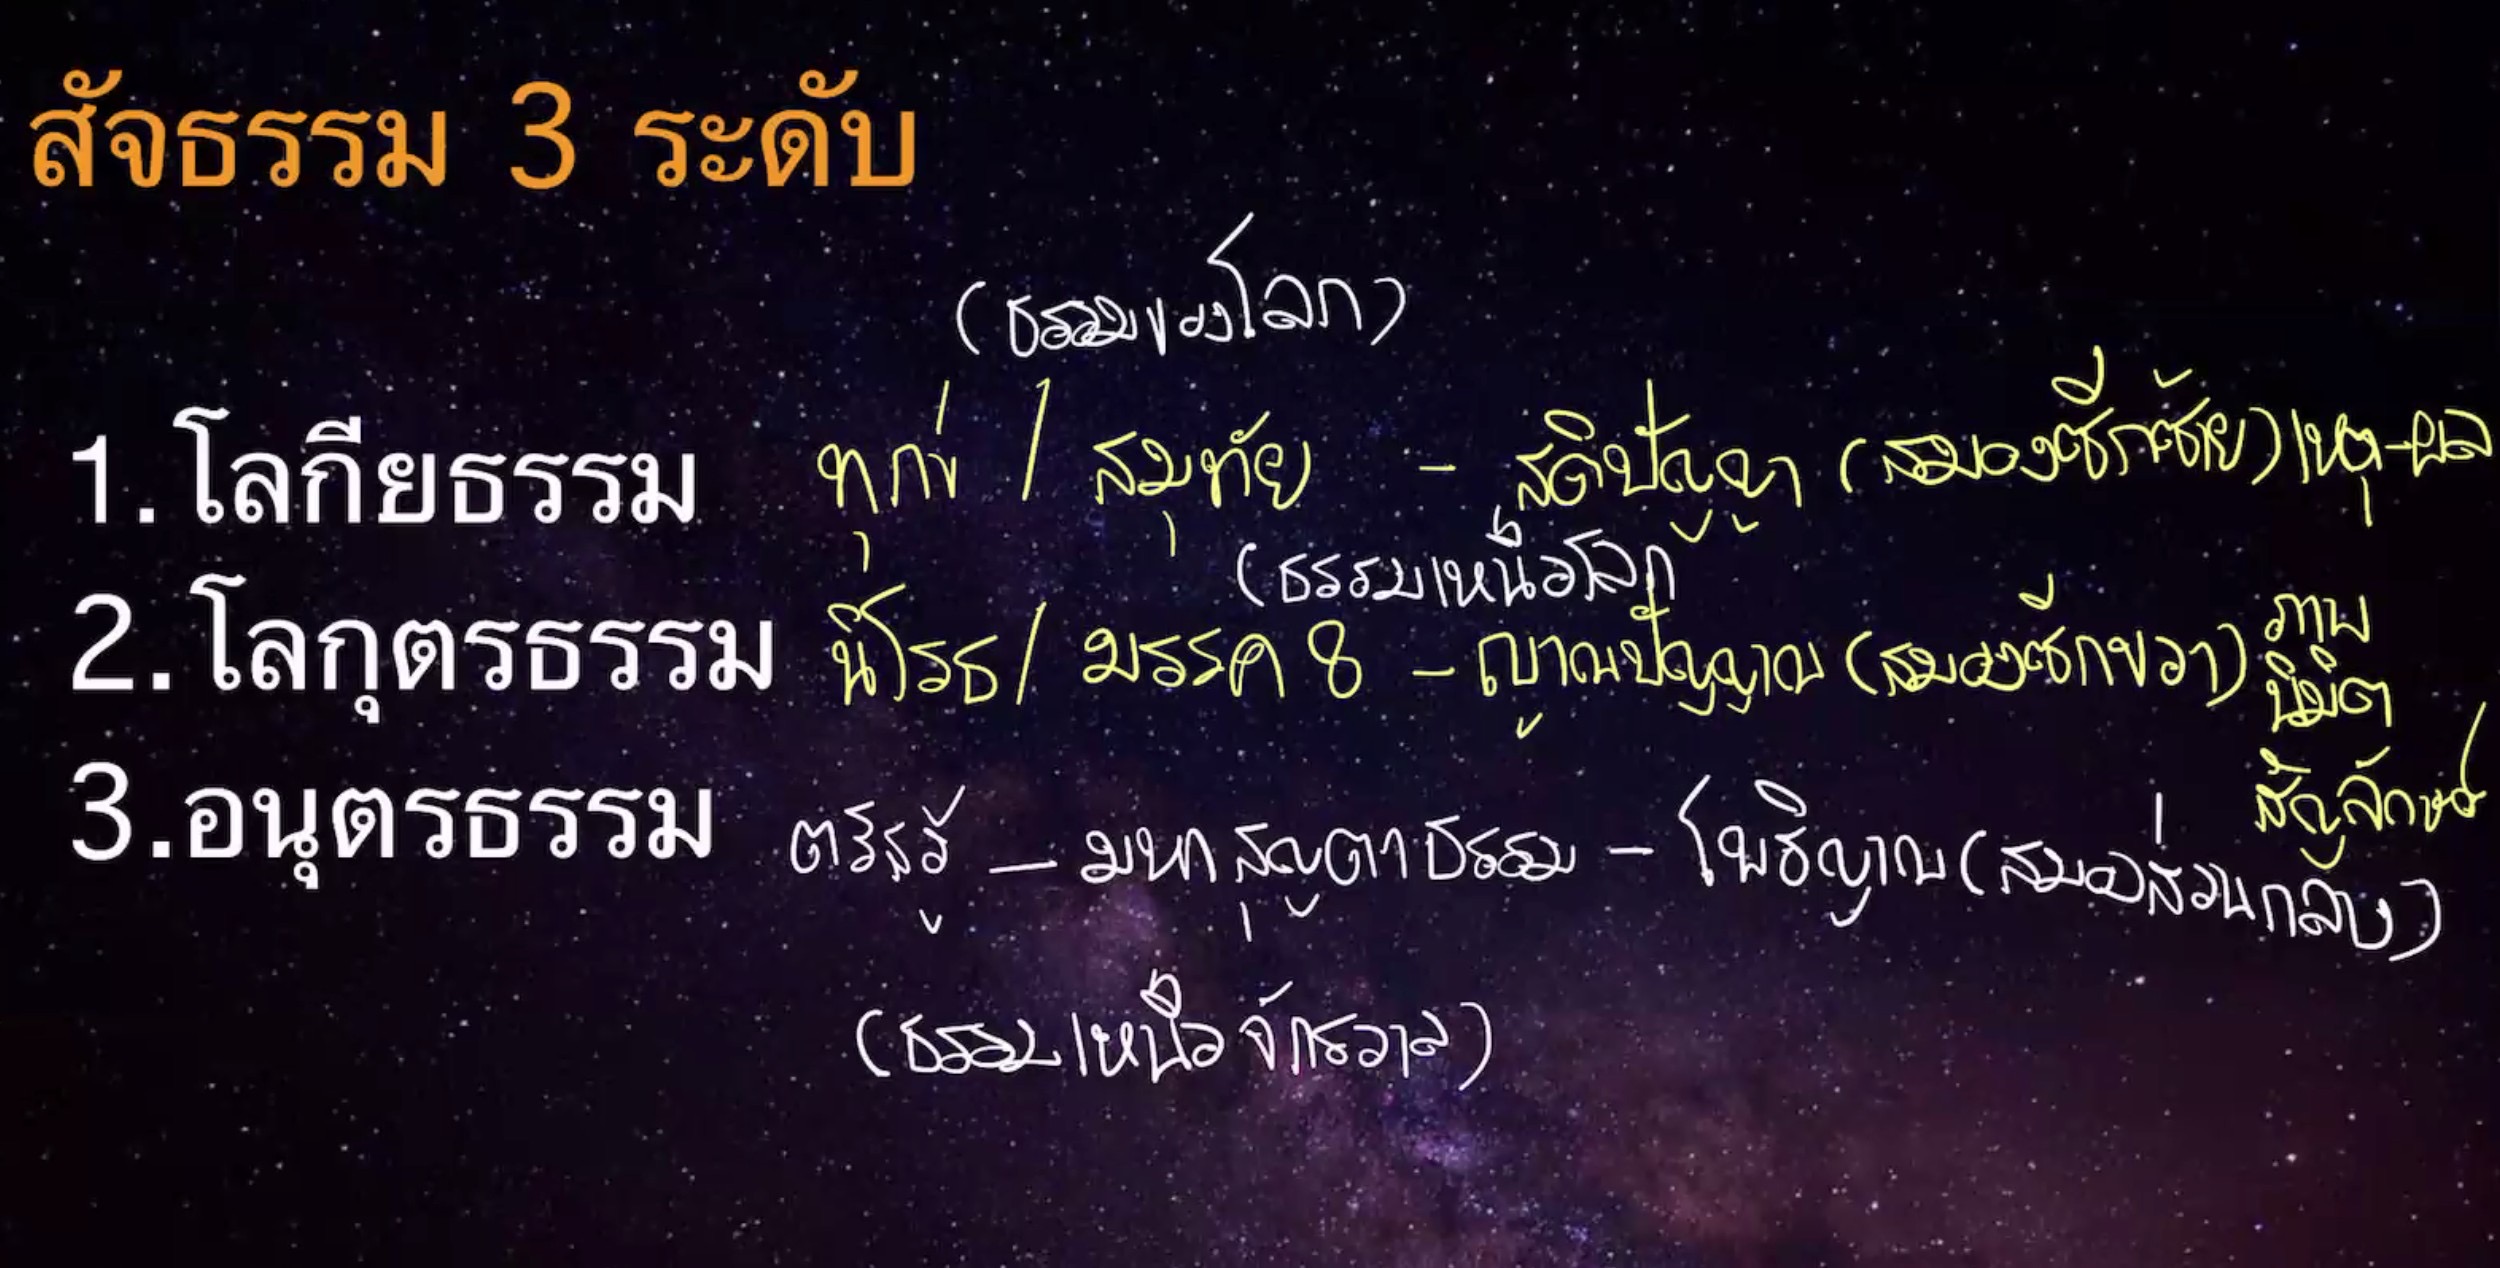 สัจธรรม 3 ระดับ
(ธรรมของโลก)
1.โลกียธรรม ทุกข์ / สมุทัย - สติปัญญา (สมองซีกซ้าย) เหตุ-ผล
(ธรรมเหนือโลก
2.โลกุตรธรรม นิโรธ / มรรค 8 - ญาณปัญญาณ (สมองซีกขวา) ภาพ
นิมิต
สัญลักษณ์
3.อนุตรธรรม ตรัสรู้ - มหาสุญตาธรรม - โพธิญาณ (สมองส่วนกลาง)
(ธรรมเหนือจักรวาล)